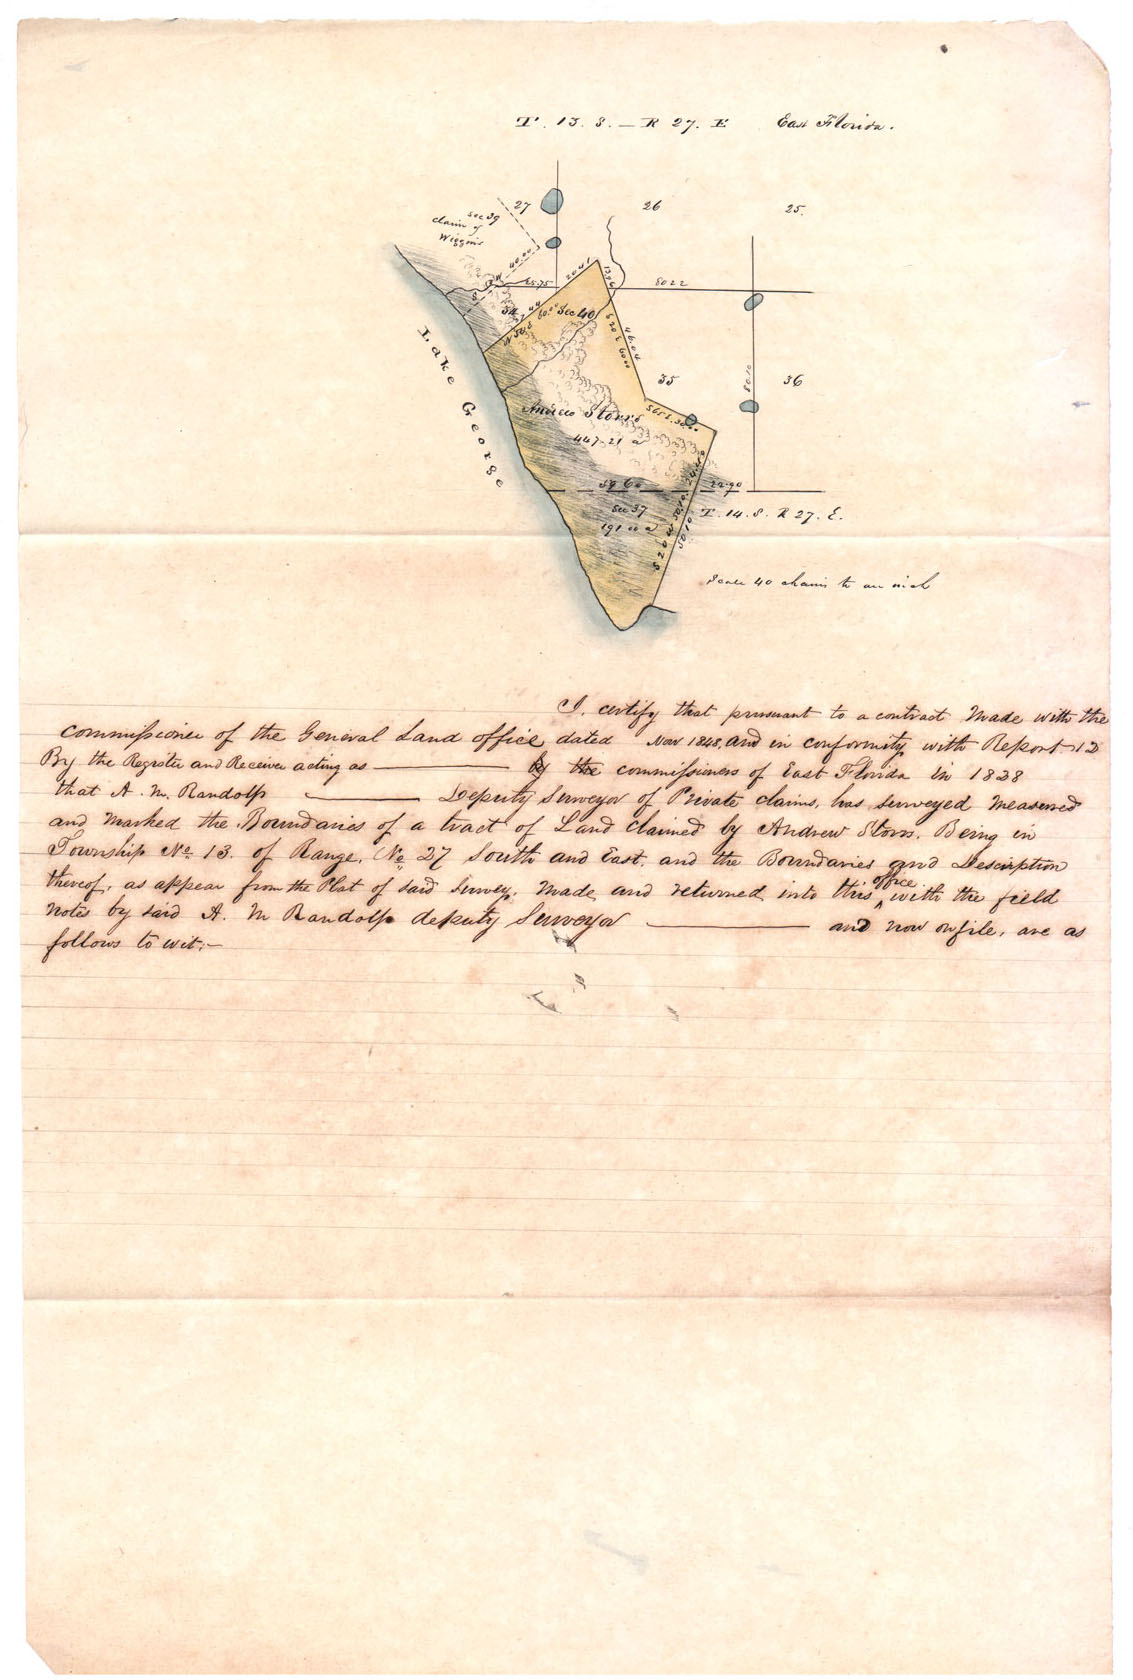 T. 13. S. — R 27. E East Florida.
27
26
25.
Sec 39
claim of
Wiggins
40.00
20.41
13.96
25.75
80.22
34
Sec 40
46.04
S 20 E 60.00
35
36
80.10
Lake George
Andrew Storrs
447.21 a
S 65 E. 30.00
59 60
22.90
Sec 37
191 00 a
T. 14. S. R 27. E.
S 20 W 50.10
50.10
Scale 40 chains to an inch
I. certify that pursuant to a contract Made with the
commissioner of the General Land office dated Nov 1848, and in conformity with Report 12
By the Register and Receiver acting as by the commissioners of East Florida in 1828
that A. M. Randolph Deputy Surveyor of Private claims, has surveyed Measured
and Marked the Boundaries of a tract of Land claimed by Andrew Storrs. Being in
Township No. 13. of Range, No 27 South and East, and the Boundaries and Description
thereof, as appear from the Plat of said Survey, Made and returned into this office with the field
notes by said A. M Randolph deputy Surveyor and now on file, are as
follows to wit:—